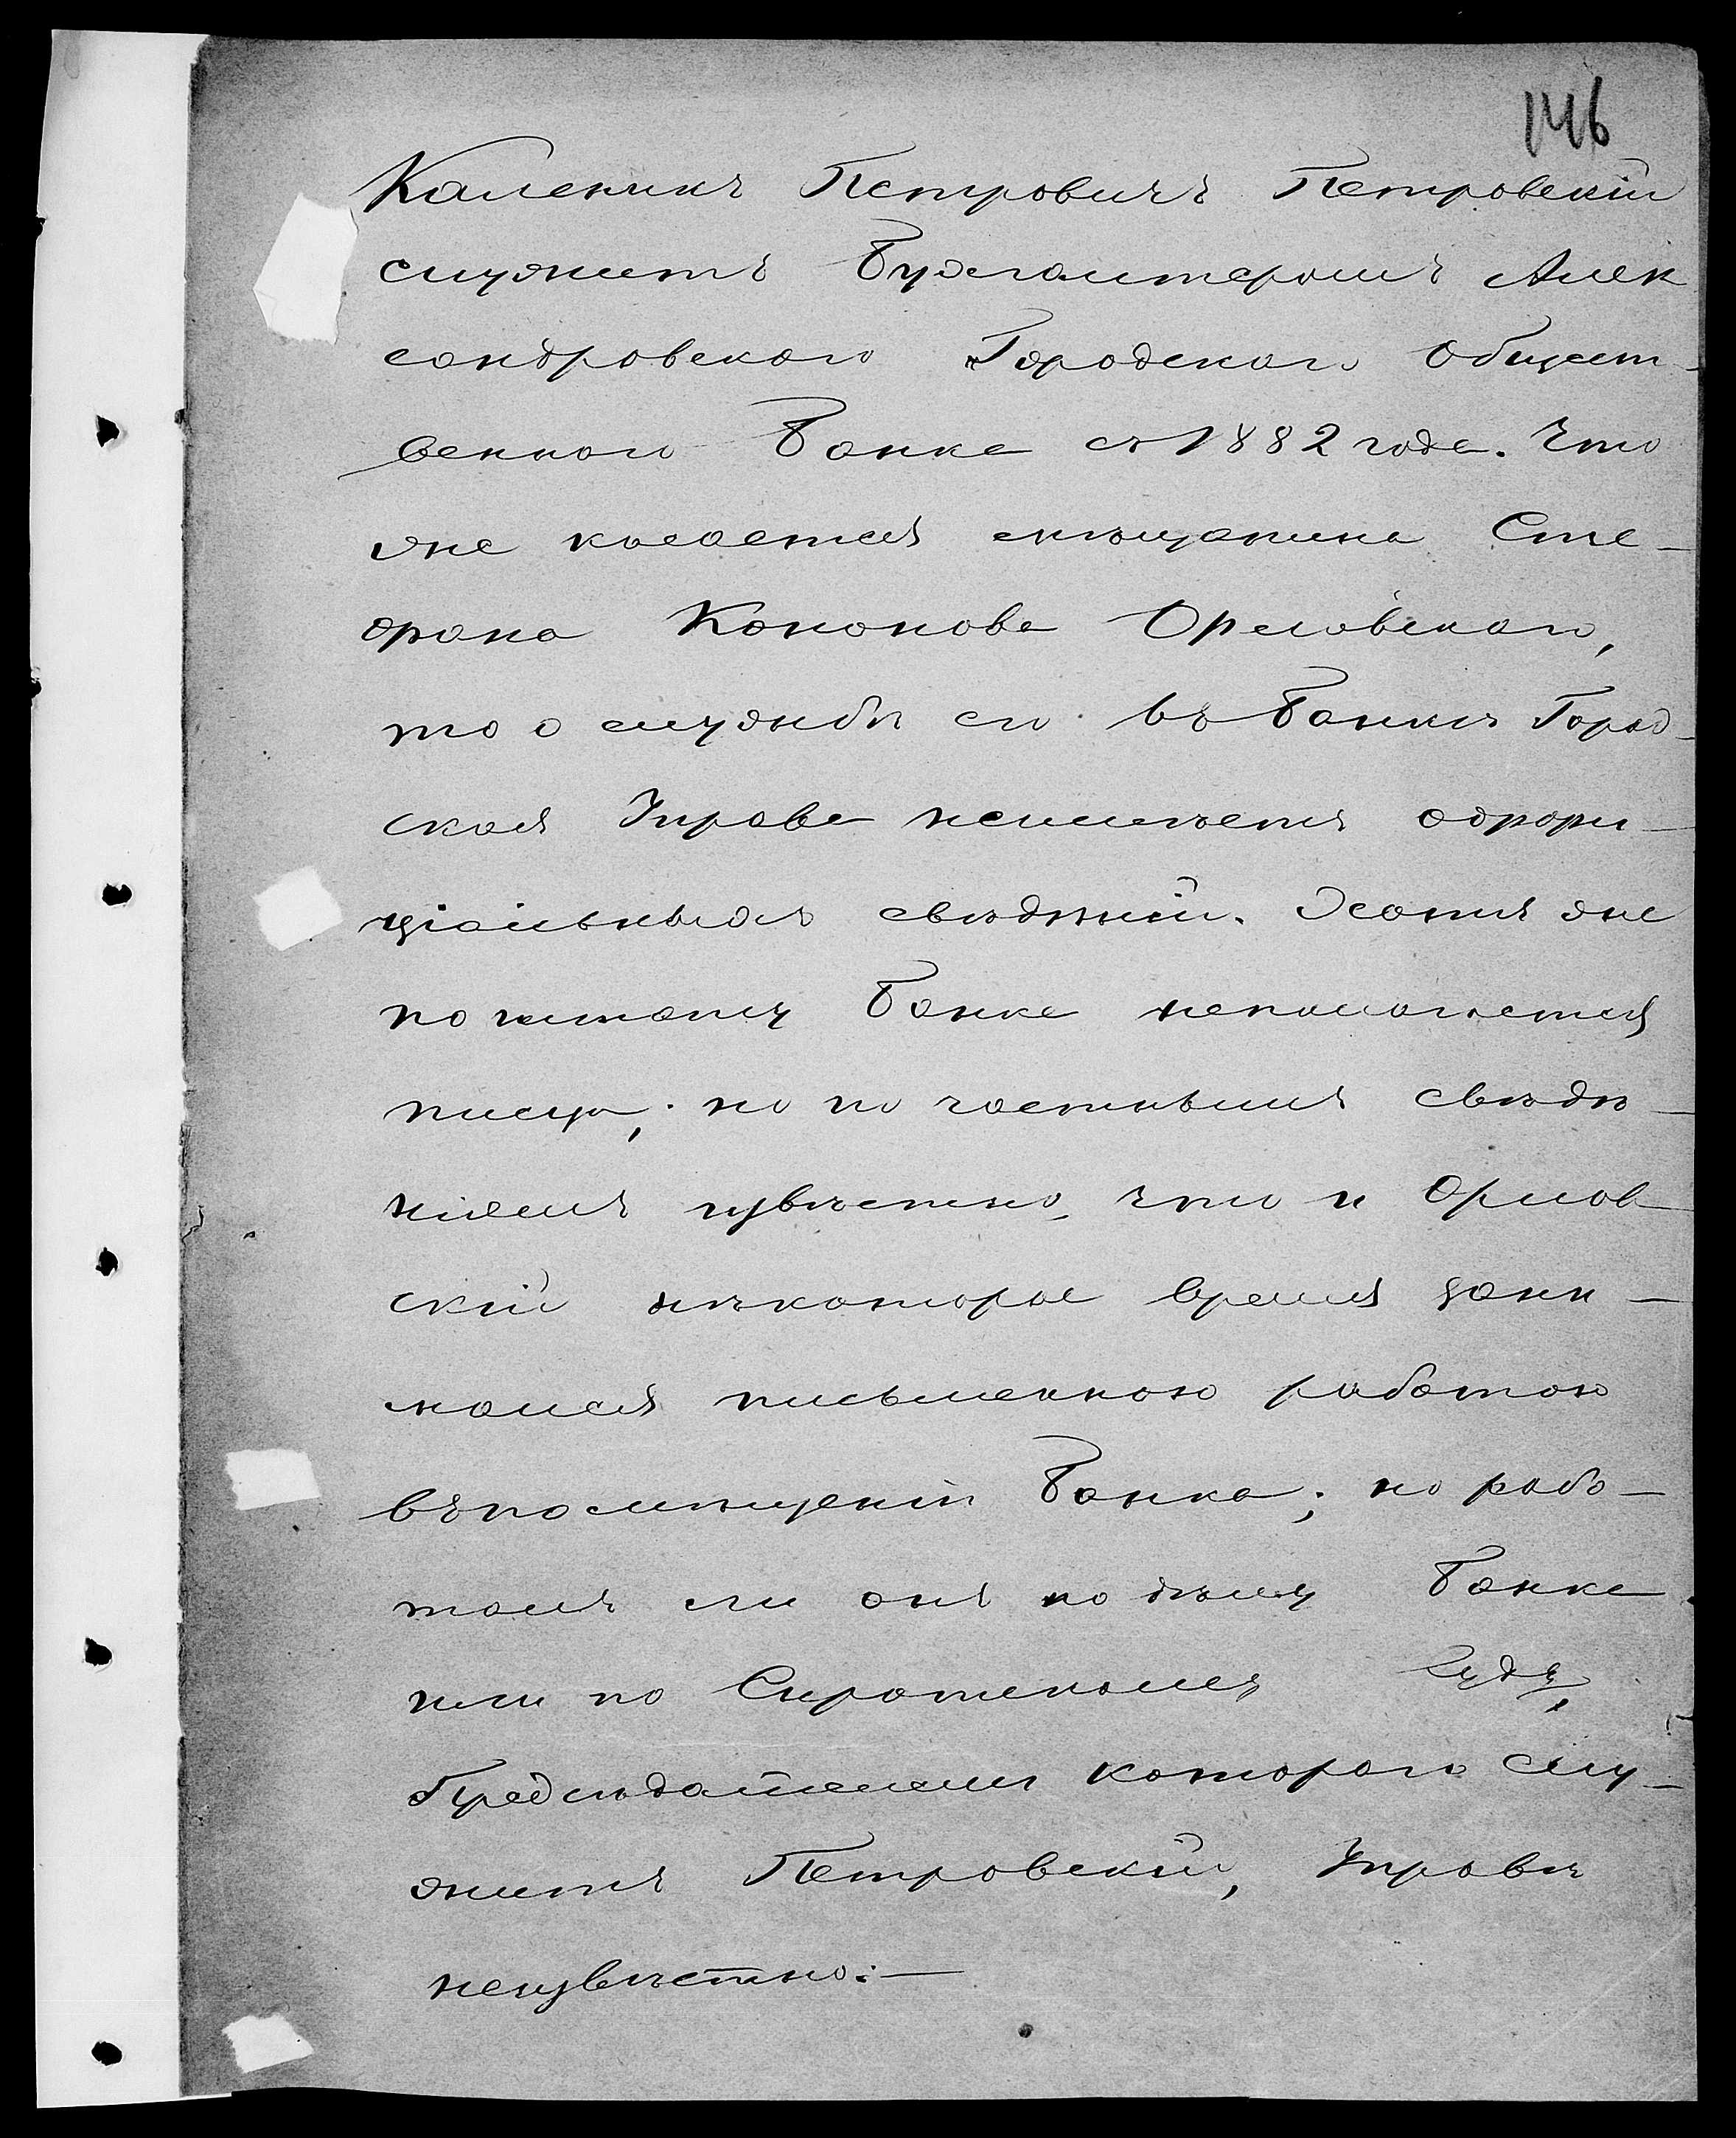 146
Каленикъ Петровичъ Петровскій
служитъ Бухгалтеромъ Алек
сандровскаго Городскаго Общест-
веннаго Банка съ 1882 года. Что
же касается мѣщанина Сте-
фана Кононова Орловскаго,
то о службѣ его въ Банкѣ Город-
ская Управа неимѣетъ оффи-
ціальныхъ свѣдѣній. Хотя же
по штату Банка неполагается
писца, но по частнымъ свѣдѣ-
ніямъ извѣстно, что и Орлов-
скій нѣкоторое время зани-
мался письменною работою
въ помѣщеніи Банка; но рабо-
талъ ли онъ по дѣлу Банка
или по Сиротскому Суду,
Предсѣдателемъ котораго слу-
житъ Петровскій, Управѣ
неизвѣстно:—